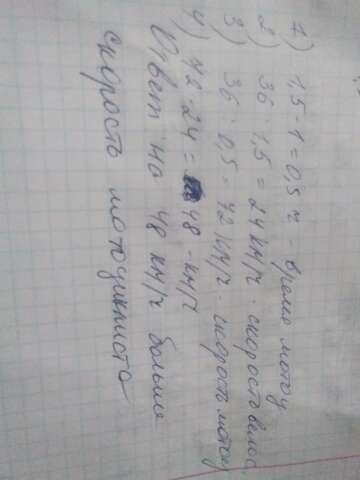 1) 1,5 - 1 = 0,5 ч - время мотоц
2) 36 : 1,5 = 24 км/ч - скорость велос
3) 36 : 0,5 = 72 км/ч - скорость мотоц
4) 72 - 24 = 48 - км/ч
Ответ: на 48 км/ч больше
скорость мотоциклиста